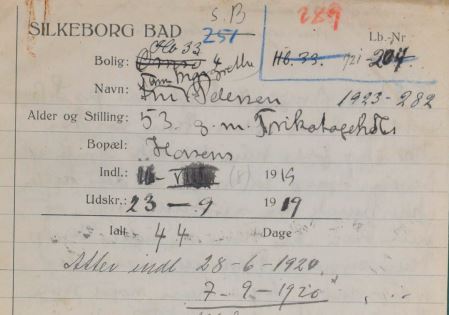 S. B 289
SILKEBORG BAD 251 Lb.-Nr
Hb 33
Bolig: 4 Hb. 33. 721-204
Navn: Pedersen 1923-282
Alder og Stilling: 53. g. m. Trikotagehdl.
Bopæl: Horsens
Indl.: 1919
Udskr.: 23 - 9 1919
Ialt 44 Dage
Atter indl 28-6-1920
7-9-1920